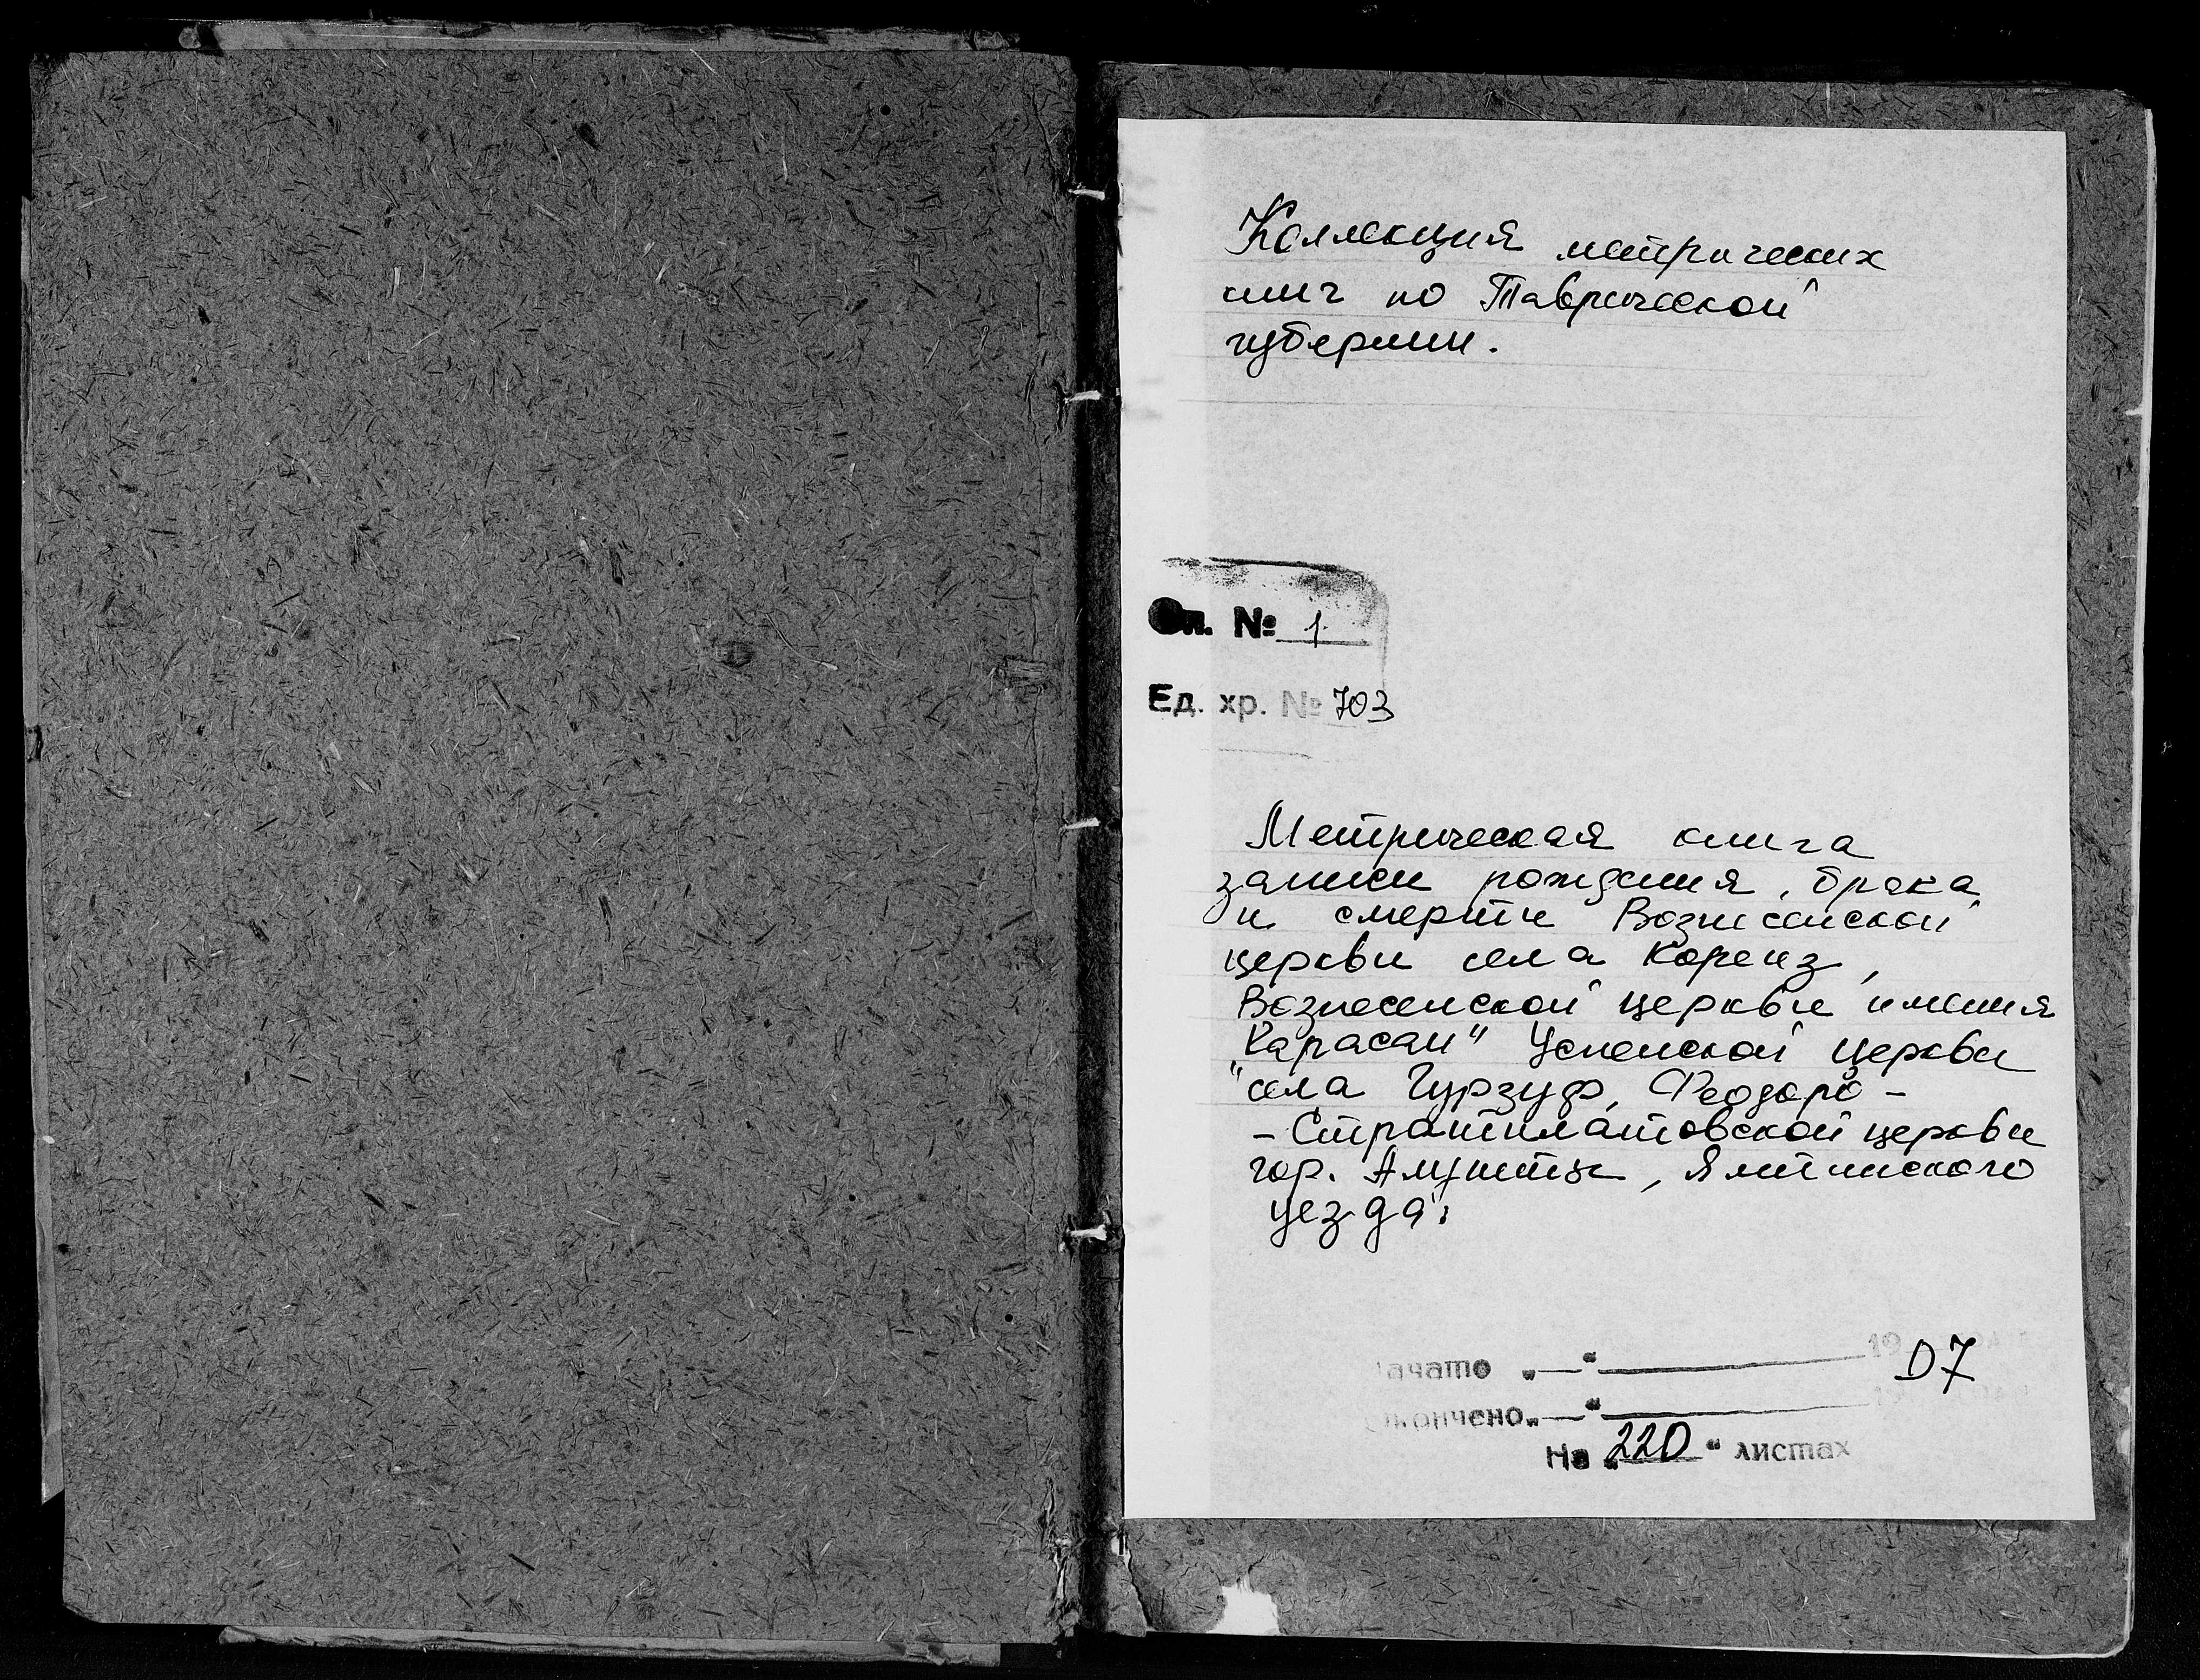 Коллекция метрических
книг по Таврической
губернии.
Оп. № 1
Ед. хр. № 703
Метрическая книга
записи рождения, брака
и смерти Вознесенской
церкви села Кореиз,
Вознесенской церкви имения
"Карасан" Успенской церкви
села Гурзуф, Феодоро-
-Стратилатовской церкви
гор. Алушты, Ялтинского
уезда.
Начато „—“ 1907
Окончено „—“
На „220“ листах